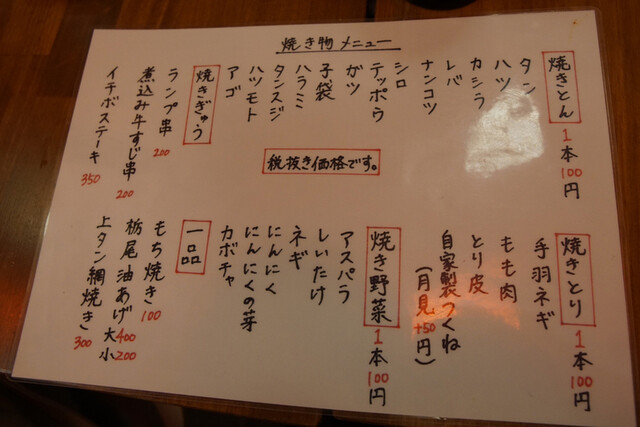 焼き物メニュー
焼きとん 1本100円
タン
ハツ
カシラ
レバ
ナンコツ
シロ
テッポウ
ガツ
子袋
ハラミ
タンスジ
ハツモト
アゴ
焼きぎゅう
ランプ串 200
煮込み牛すじ串 200
イチボステーキ 350
税抜き価格です。
焼きとり 1本100円
手羽ネギ
もも肉
とり皮
自家製つくね
(月見+50円)
焼き野菜 1本100円
アスパラ
しいたけ
ネギ
にんにく
にんにくの芽
カボチャ
一品
もち焼き 100
栃尾油あげ 大400
小200
上タン網焼き 300